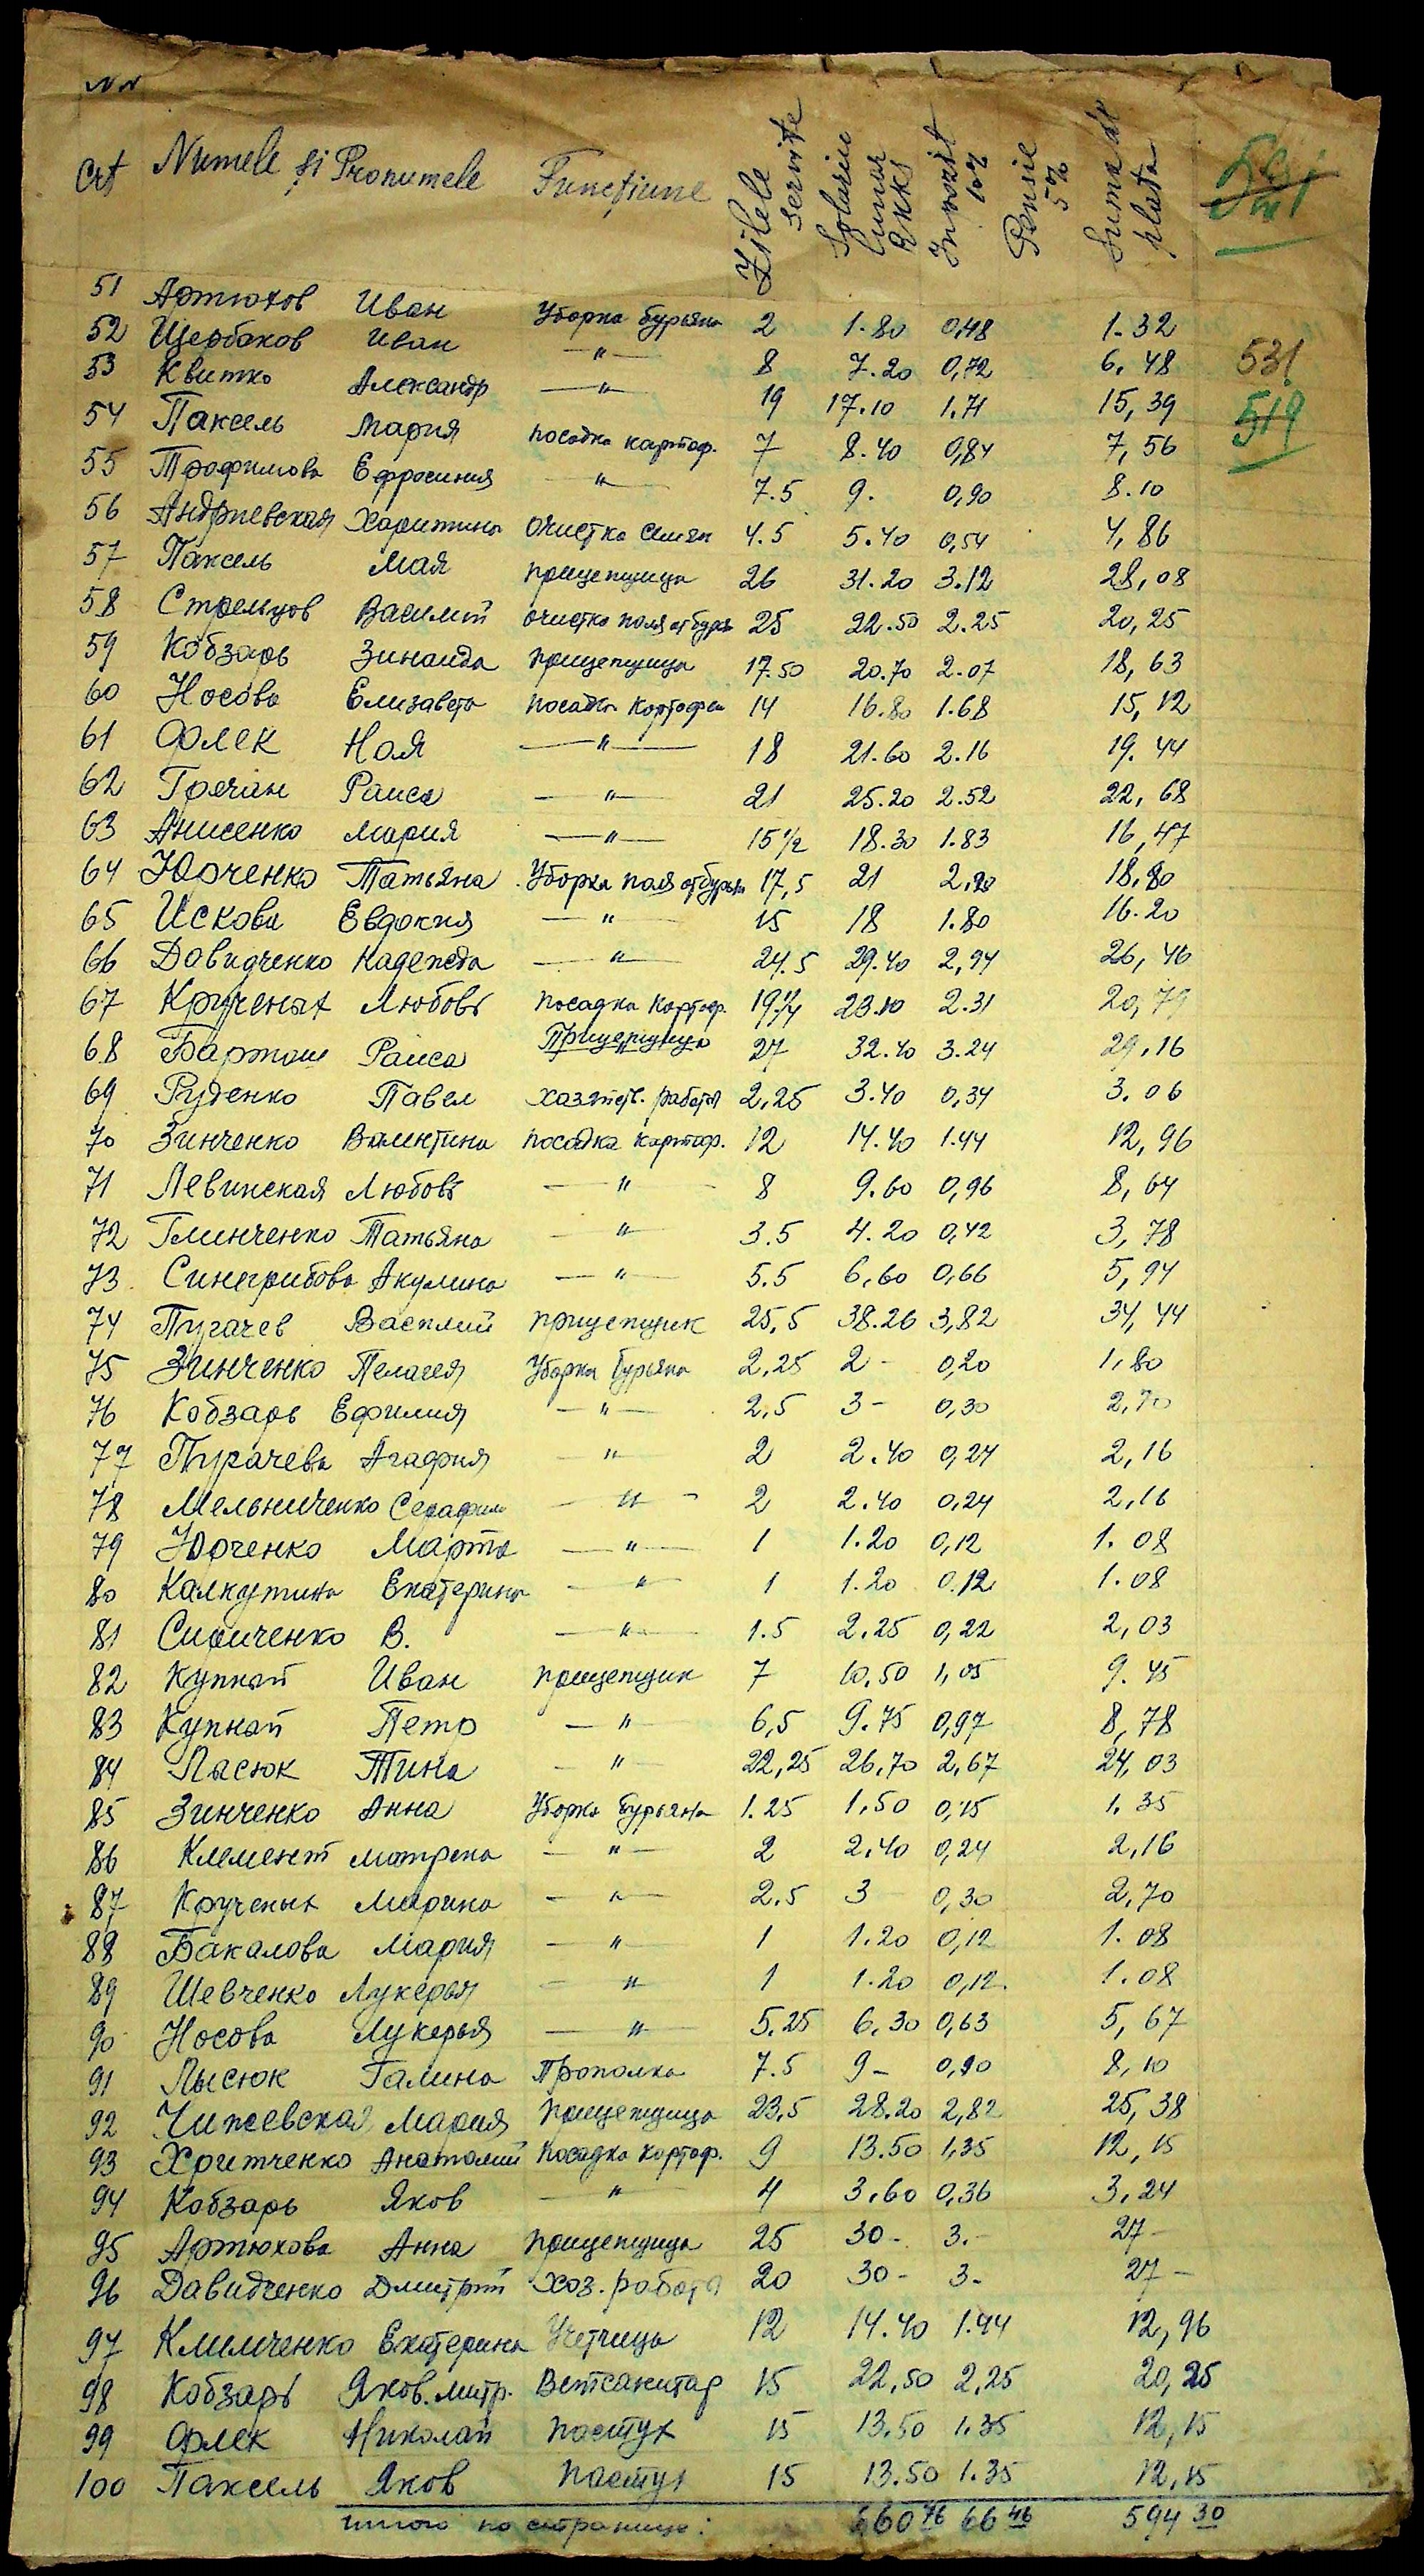 NN
Crt Numele și Pronumele Funcțiune Zilele servite Salariu lunar RKKS Impozit 10% Pensie 5% Suma de plata
51 Артюхов Иван Уборка бурьяна 2 1.80 0,48 1.32
52 Щербаков Иван —"— 8 7.20 0,72 6,48 531
53 Квитко Александр —"— 19 17.10 1.71 15,39
54 Паксель Мария посадка картоф. 7 8.40 0,84 7,56 519
55 Трофимова Ефросиния —"— 7.5 9. 0,90 8.10
56 Андриевская Харитина очистка семян 4.5 5.40 0,54 4,86
57 Паксель Мая прицепщица 26 31.20 3.12 28,08
58 Стрельцов Василий очистка поля от бурь 25 22.50 2.25 20,25
59 Кобзарь Зинаида прицепщица 17.50 20.70 2.07 18,63
60 Носова Елизавета посадка картофел 14 16.80 1.68 15,12
61 Флек Ная —"— 18 21.60 2.16 19.44
62 Гречан Раиса —"— 21 25.20 2.52 22,68
63 Анисенко Мария —"— 15 1/2 18.30 1.83 16,47
64 Юрченко Татьяна Уборка поля от бурьн 17,5 21 2,20 18,80
65 Искова Евдокия —"— 15 18 1.80 16.20
66 Давидченко Надежда —"— 24.5 29.40 2,94 26,46
67 Крученых Любовь посадка картоф. 19 1/4 23.10 2.31 20,79
68 Бартош Раиса Прицепщица 27 32.40 3.24 29,16
69 Руденко Павел хазяйств. работа 2,25 3.40 0,34 3.06
70 Зинченко Валентина посадка картоф. 12 14.40 1.44 12,96
71 Левинская Любовь —"— 8 9.60 0,96 8,64
72 Глинченко Татьяна —"— 3.5 4.20 0,42 3,78
73 Синегрибова Акулина —"— 5.5 6,60 0,66 5,94
74 Пугачев Василий прицепщик 25,5 38.26 3,82 34,44
75 Зинченко Пелагея Уборка бурьяна 2,25 2 - 0,20 1,80
76 Кобзарь Ефимия —"— 2,5 3 - 0,30 2,70
77 Пугачева Агафия —"— 2 2.40 0,24 2,16
78 Мельниченко Серафим —"— 2 2.40 0,24 2,16
79 Юрченко Марта —"— 1 1.20 0,12 1.08
80 Калкутина Екатерина —"— 1 1.20 0.12 1.08
81 Сириченко В. —"— 1.5 2.25 0,22 2,03
82 Купнай Иван прицепщик 7 10,50 1,05 9.45
83 Купнай Петр —"— 6,5 9.75 0,97 8,78
84 Лысюк Тина —"— 22,25 26,70 2,67 24,03
85 Зинченко Анна Уборка бурьяна 1.25 1,50 0,15 1.35
86 Клемент Матрена —"— 2 2,40 0,24 2,16
87 Крученых Марина —"— 2.5 3 0,30 2,70
88 Бакалова Мария —"— 1 1.20 0,12 1.08
89 Шевченко Лукерья —"— 1 1.20 0,12 1.08
90 Носова Лукерья —"— 5.25 6,30 0,63 5,67
91 Лысюк Галина Прополка 7.5 9 - 0,90 8,10
92 Чижевская Мария прицепщица 23,5 28.20 2,82 25,38
93 Хритченко Анатолий посадка картоф. 9 13.50 1,35 12,15
94 Кобзарь Яков —"— 4 3,60 0,36 3,24
95 Артюхова Анна прицепщица 25 30 - 3.- 27 -
96 Давидченко Дмитрий хоз. работа 20 30 - 3 - 27 -
97 Климченко Екатерина Учетчица 12 14.40 1.44 12,96
98 Кобзарь Яков. митр. Ветсанитар 15 22,50 2,25 20,25
99 Флек Николай пастух 15 13.50 1.35 12,15
100 Паксель Яков пастух 15 13.50 1.35 12,15
итого по странице: 660 76 66 46 594 30